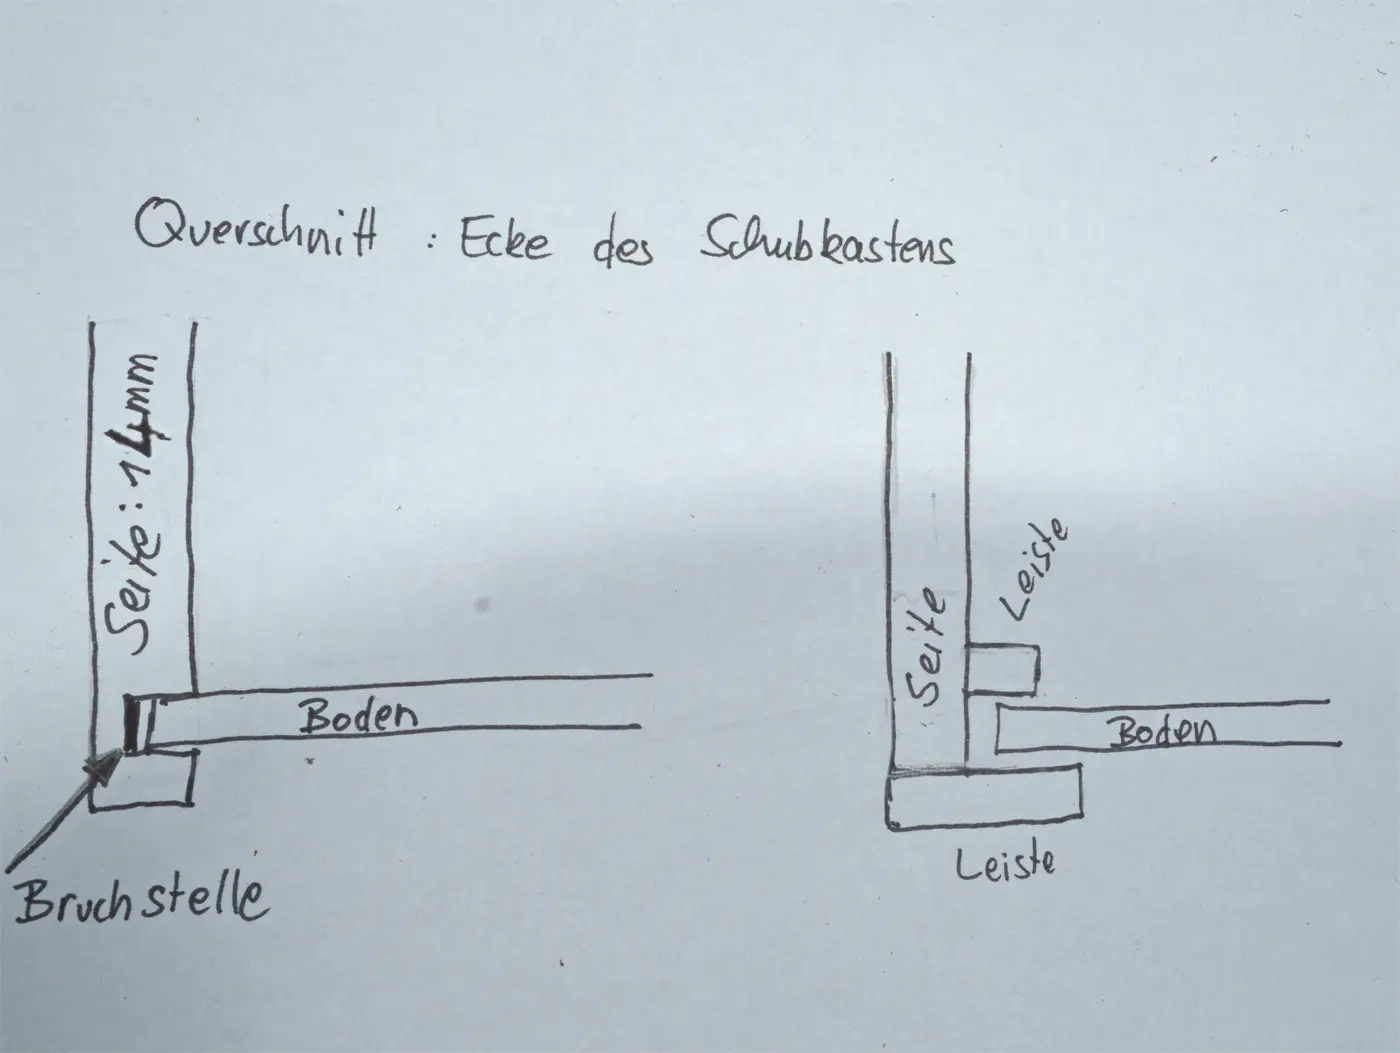 Querschnitt : Ecke des Schubkastens
Seite: 14mm
Boden
Bruchstelle
Seite
Leiste
Boden
Leiste